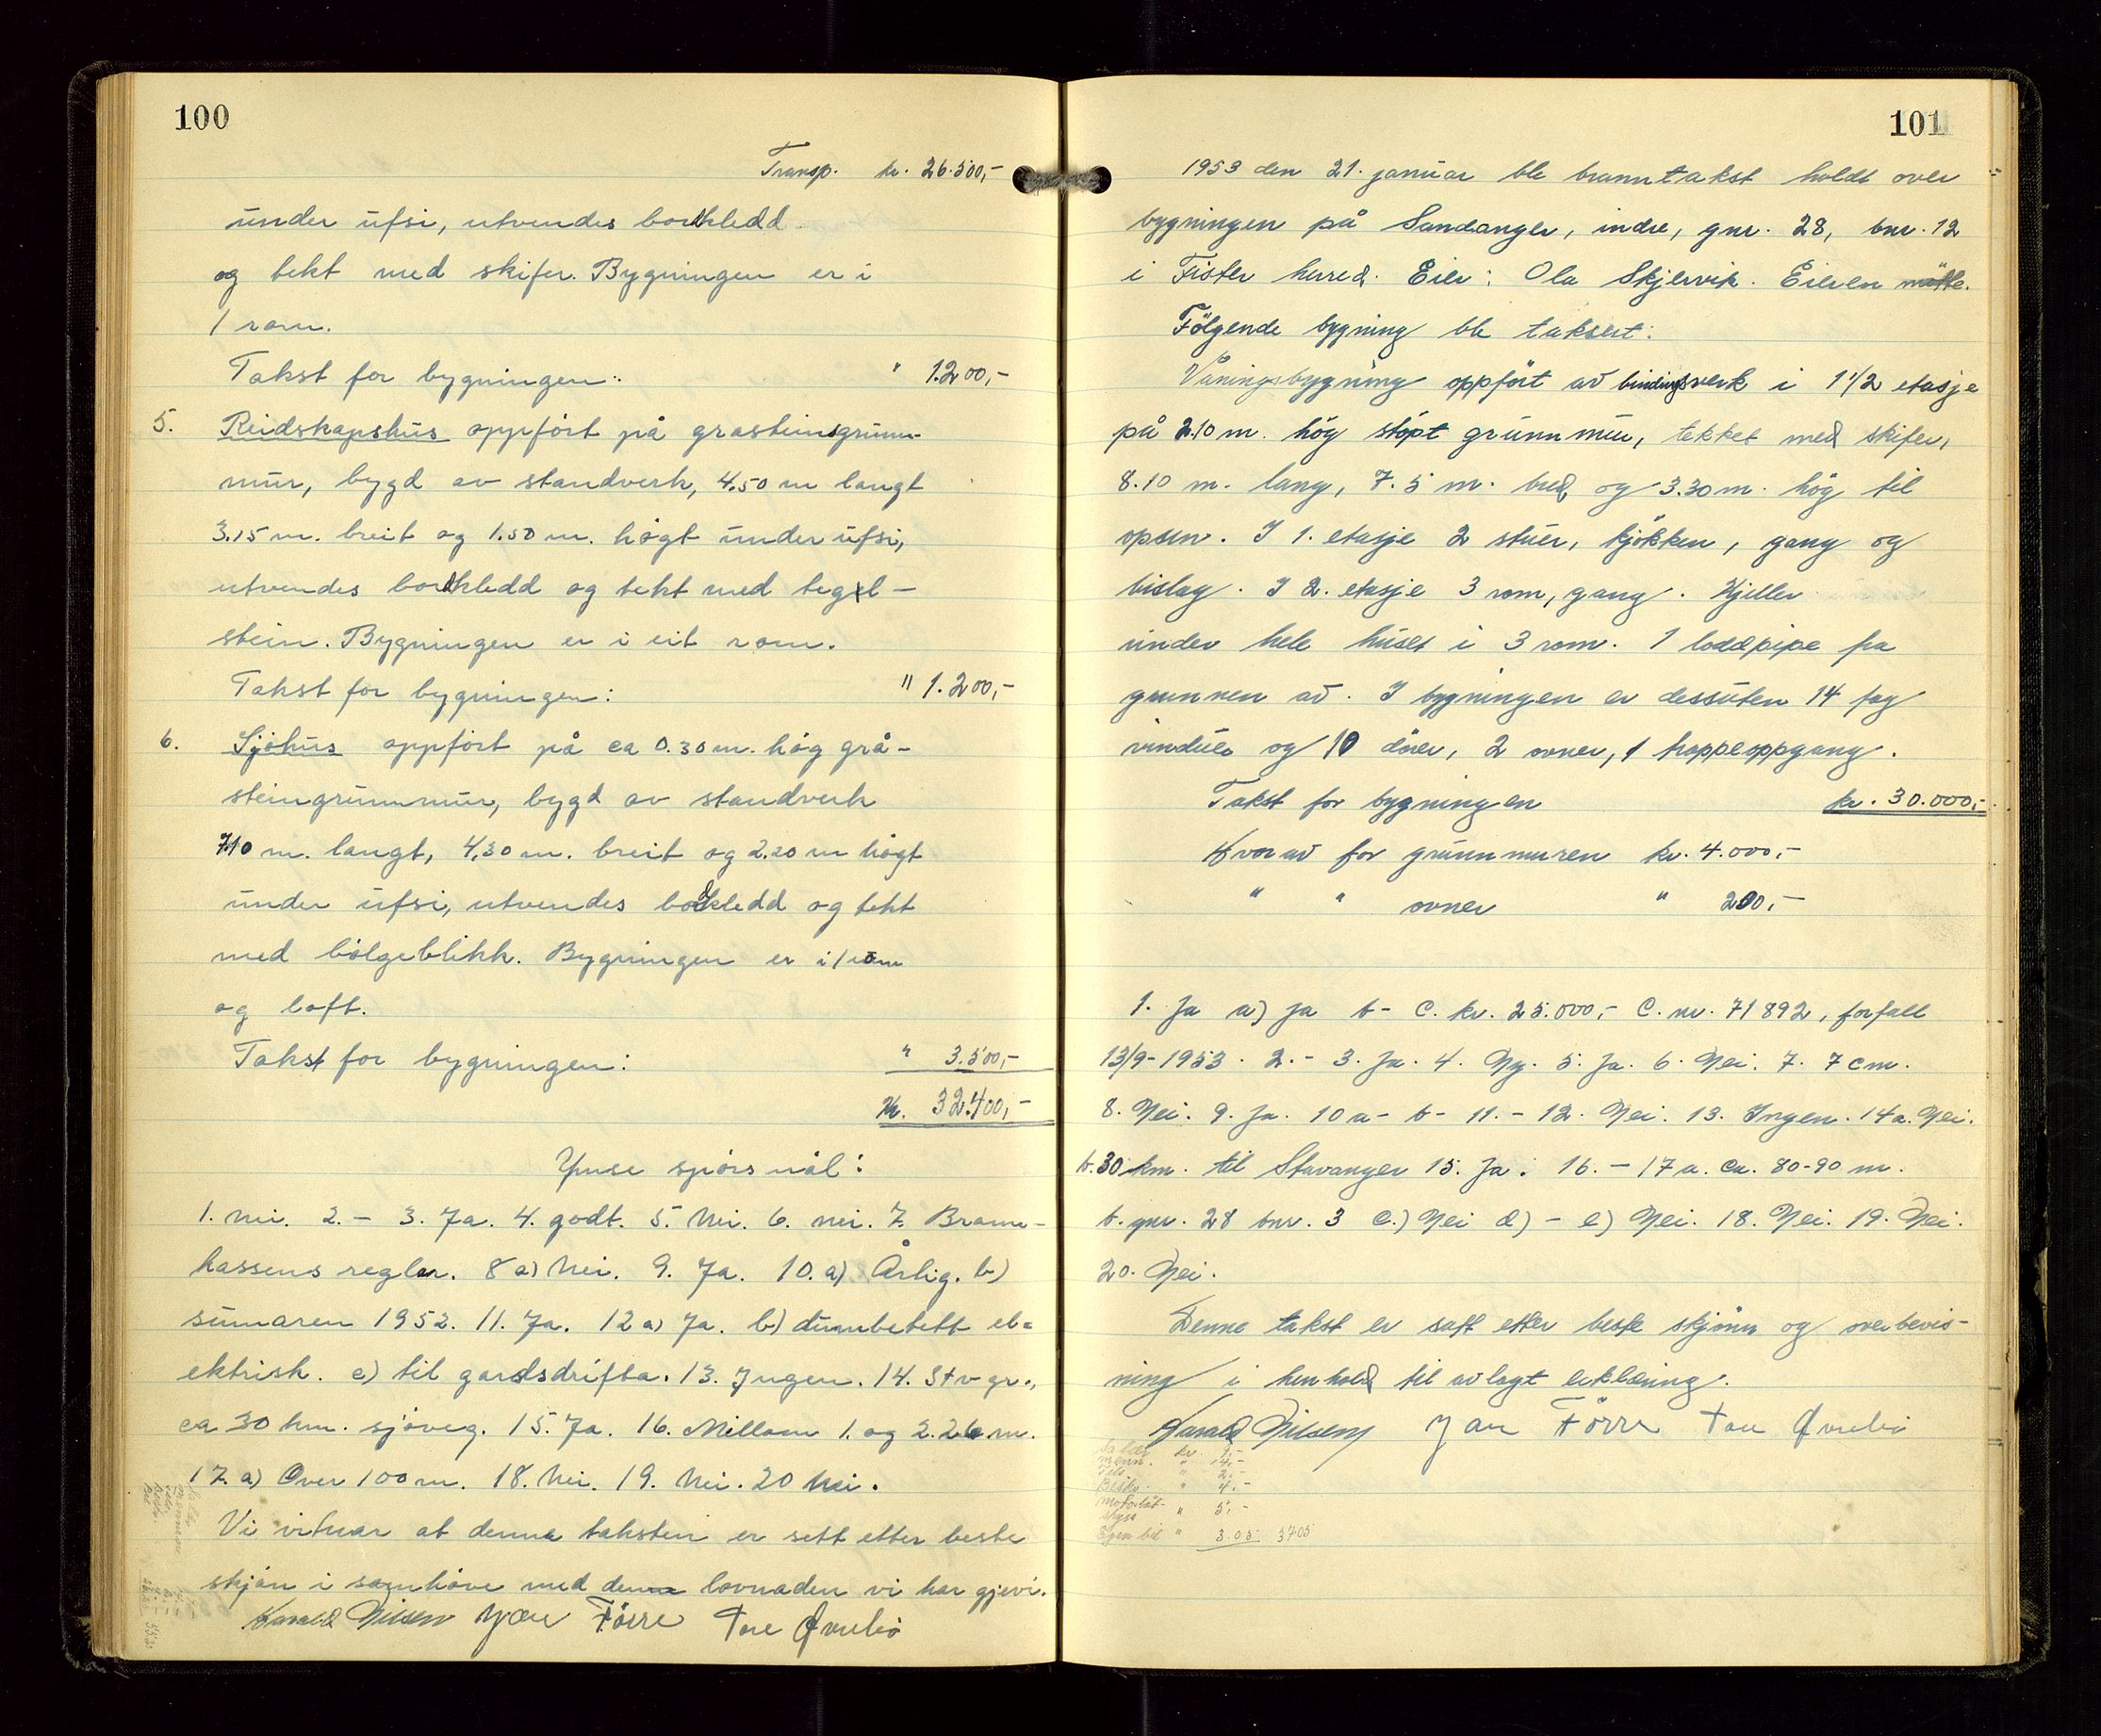 100
Transp. kr. 26.500,-
under ufsi, utvendes bordkledd
og tekt med skifer. Bygningen er i
1 rom.
Takst for bygningen: " 1.200,-
5. Reidskapshus oppført på grasteinsgrunn-
mur, bygd av standverk, 4.50 m langt
3.15 m. breit og 1.50 m. högt under ufsi,
utvendes bordkledd og tekt med tegl-
stein. Bygningen er i eit rom.
Takst for bygningen: " 1.200,-
6. Sjöhus oppfört på ca 0.30 m. hög grå-
steingrunnmur, bygd av standverk
7.10 m. langt, 4,30 m. breit og 2.20 m högt
under ufsi, utvendes bordkledd og tekt
med bölgeblikk. Bygningen er i 1 rom
og loft.
Takst for bygningen: " 3.500,-
Kr. 32.400,-
Ymse spörsmål:
1. nei. 2. - 3. Ja. 4. godt. 5. Nei. 6. nei. 7. Brann-
kassens reglar. 8 a) Nei. 9. Ja. 10. a) Årlig. b)
sumaren 1952. 11. Ja. 12 a) Ja. b) elektrisk. c) til gardsdrifta. 13. Ingen. 14. Stvgr.,
ca 30 km. sjöveg. 15. Ja. 16. Millom 1. og 2. 26 m.
17. a) Over 100 m. 18. Nei. 19. Nei. 20 Nei.
Vi vitnar at denne taksten er sett etter beste
skjön i samhöve med denne lovnaden vi har gjevi.
Harald Nilsen Jon Förre Tore Qvrebö
101
1953 den 21. januar ble branntakst holdt over
bygningen på Sandanger, indre, gnr. 28, bnr. 12
i Fister herred. Eier: Ola Skjervik. Eieren møtte.
Fölgende bygning ble taksert:
Våningsbygning oppfört av bindingsverk i 1 1/2 etasje
på 2.10 m. hög stöpt grunnmur, tekket med skifer,
8.10 m. lang, 7.5 m. bred og 3.30 m. hög til
opsen. I 1. etasje 2 stuer, kjökken, gang og
bislag. I 2. etasje 3 rom, gang. Kjeller
under hele huset i 3 rom. 1 loddpipe fra
grunnen av. I bygningen er dessuten 14 fag
vinduer og 10 dörer, 2 ovner, 1 trappeoppgang.
Takst for bygningen kr. 30.000,-
Hvorav for grunnmuren kr. 4.000,-
" " ovner " 200,-
1. Ja a) ja b - C. kr. 25.000,- C. nr. 71892, forfall
13/9-1953. 2. - 3. Ja. 4. Ny. 5. Ja. 6. Nei. 7. 7 cm.
8. Nei. 9. Ja. 10 a - b - 11. - 12. Nei. 13. Ingen. 14 a. Nei.
b. 30 km. til Stavanger 15. Ja. 16. - 17 a. Ca. 80-90 m.
b. gnr. 28 bnr. 3 c.) Nei d) - e) Nei. 18. Nei. 19. Nei.
20. Nei.
Denne takst er satt etter beste skjönn og overbevis-
ning i henhold til avlagt erklæring.
Harald Nilsen Jon Förre Tore Qvrebö
Salær kr. 9,-
menn. " 14,-
" 2,-
Beskr. " 4,-
Motorbåt-
skyss " 5,-
Egen bil " 3.05 37.05